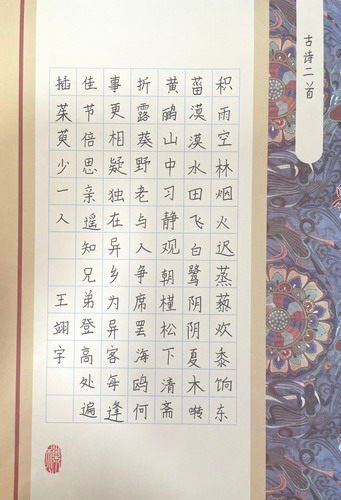 古诗二首
积雨空林烟火迟蒸藜欢黍饷东
菑漠漠水田飞白鹭阴阴夏木啭
黄鹂山中习静观朝槿松下清斋
折露葵野老与人争席罢海鸥何
事更相疑独在异乡为异客每逢
佳节倍思亲遥知兄弟登高处遍
插茱萸少一人 王翊宇